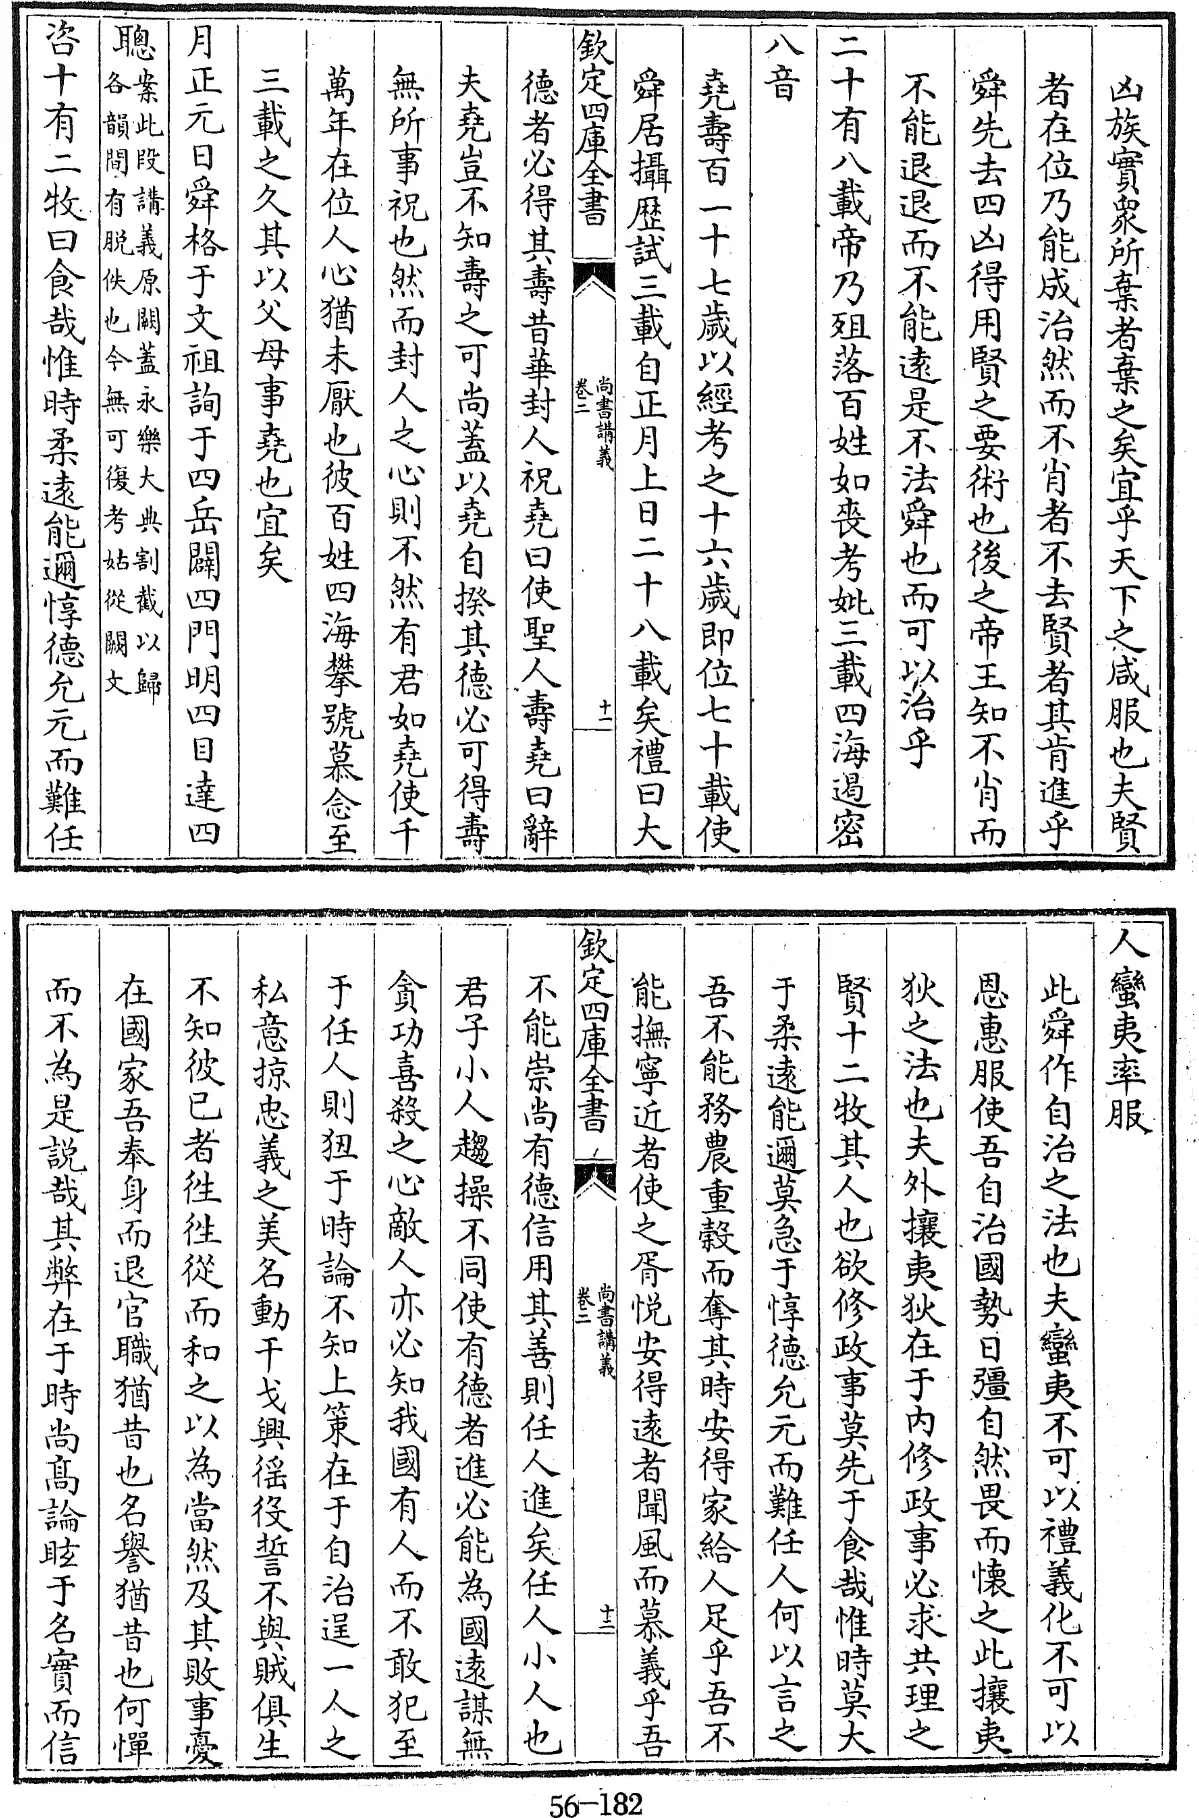 凶族實衆所棄者棄之矣宜乎天下之咸服也夫賢
者在位乃能成治然而不肖者不去賢者其肯進乎
舜先去四凶得用賢之要術也後之帝王知不肖而
不能退退而不能遠是不法舜也而可以治乎
二十有八載帝乃殂落百姓如喪考妣三載四海遏密
八音
堯壽百一十七歲以經考之十六歲即位七十載使
舜居攝歷試三載自正月上日二十八載矣禮曰大
欽定四庫全書
尚書講義
卷三
十一
德者必得其壽昔華封人祝堯曰使聖人壽堯曰辭
夫堯豈不知壽之可尚蓋以堯自揆其德必可得壽
無所事祝也然而封人之心則不然有君如堯使千
萬年在位人心猶未厭也彼百姓四海攀號慕念至
三載之久其以父母事堯也宜矣
月正元日舜格于文祖詢于四岳闢四門明四目達四
聰案此段講義原闕蓋永樂大典割截以歸
各韻間有脫佚也今無可復考姑從闕文
咨十有二牧曰食哉惟時柔遠能邇惇德允元而難任
人蠻夷率服
此舜作自治之法也夫蠻夷不可以禮義化不可以
恩惠服使吾自治國勢日彊自然畏而懷之此攘夷
狄之法也夫外攘夷狄在于內修政事必求共理之
賢十二牧其人也欲修政事莫先于食哉惟時莫大
于柔遠能邇莫急于惇德允元而難任人何以言之
吾不能務農重穀而奪其時安得家給人足乎吾不
能撫寧近者使之胥悅安得遠者聞風而慕義乎吾
欽定四庫全書
尚書講義
卷三
十二
不能崇尚有德信用其善則任人進矣任人小人也
君子小人趨操不同使有德者進必能為國遠謀無
貪功喜殺之心敵人亦必知我國有人而不敢犯至
于任人則狃于時論不知上策在于自治逞一人之
私意掠忠義之美名動干戈興徭役誓不與賊俱生
不知彼已者徃徃從而和之以為當然及其敗事憂
在國家吾奉身而退官職猶昔也名譽猶昔也何憚
而不為是説哉其弊在于時尚高論眩于名實而信
56-182